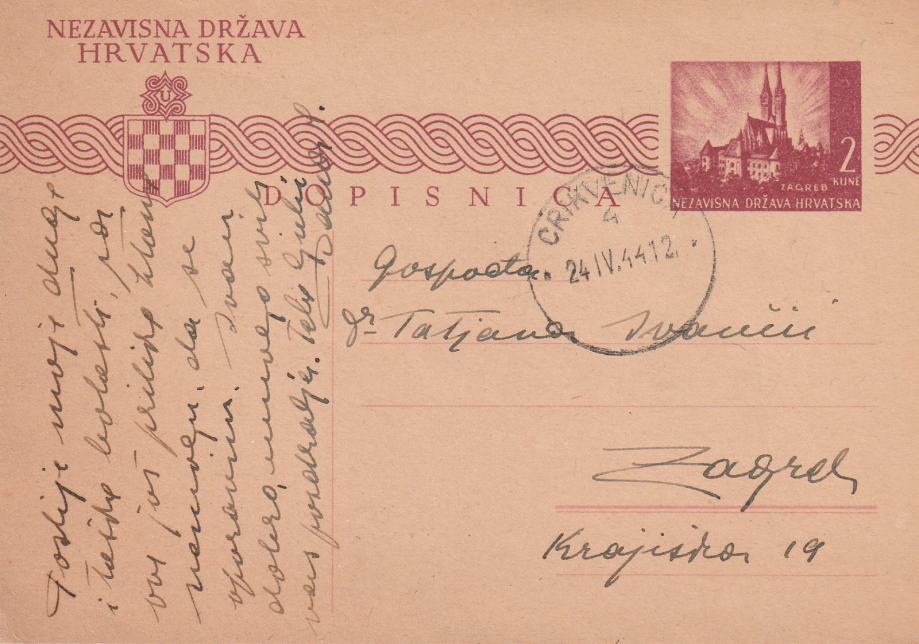 NEZAVISNA DRŽAVA
HRVATSKA
U
DOPISNICA
ZAGREB
2
KUNE
NEZAVISNA DRŽAVA HRVATSKA
CRIKVENICA
4
24 IV.44 12
Gospođa
Dr Tatjana Ivančić
Zagreb
Krajiška 19
Poslije moje duge
i teške bolesti,
još prilike
nemogu, da se
oporavim.
dobro, mnogo
vas pozdravlja